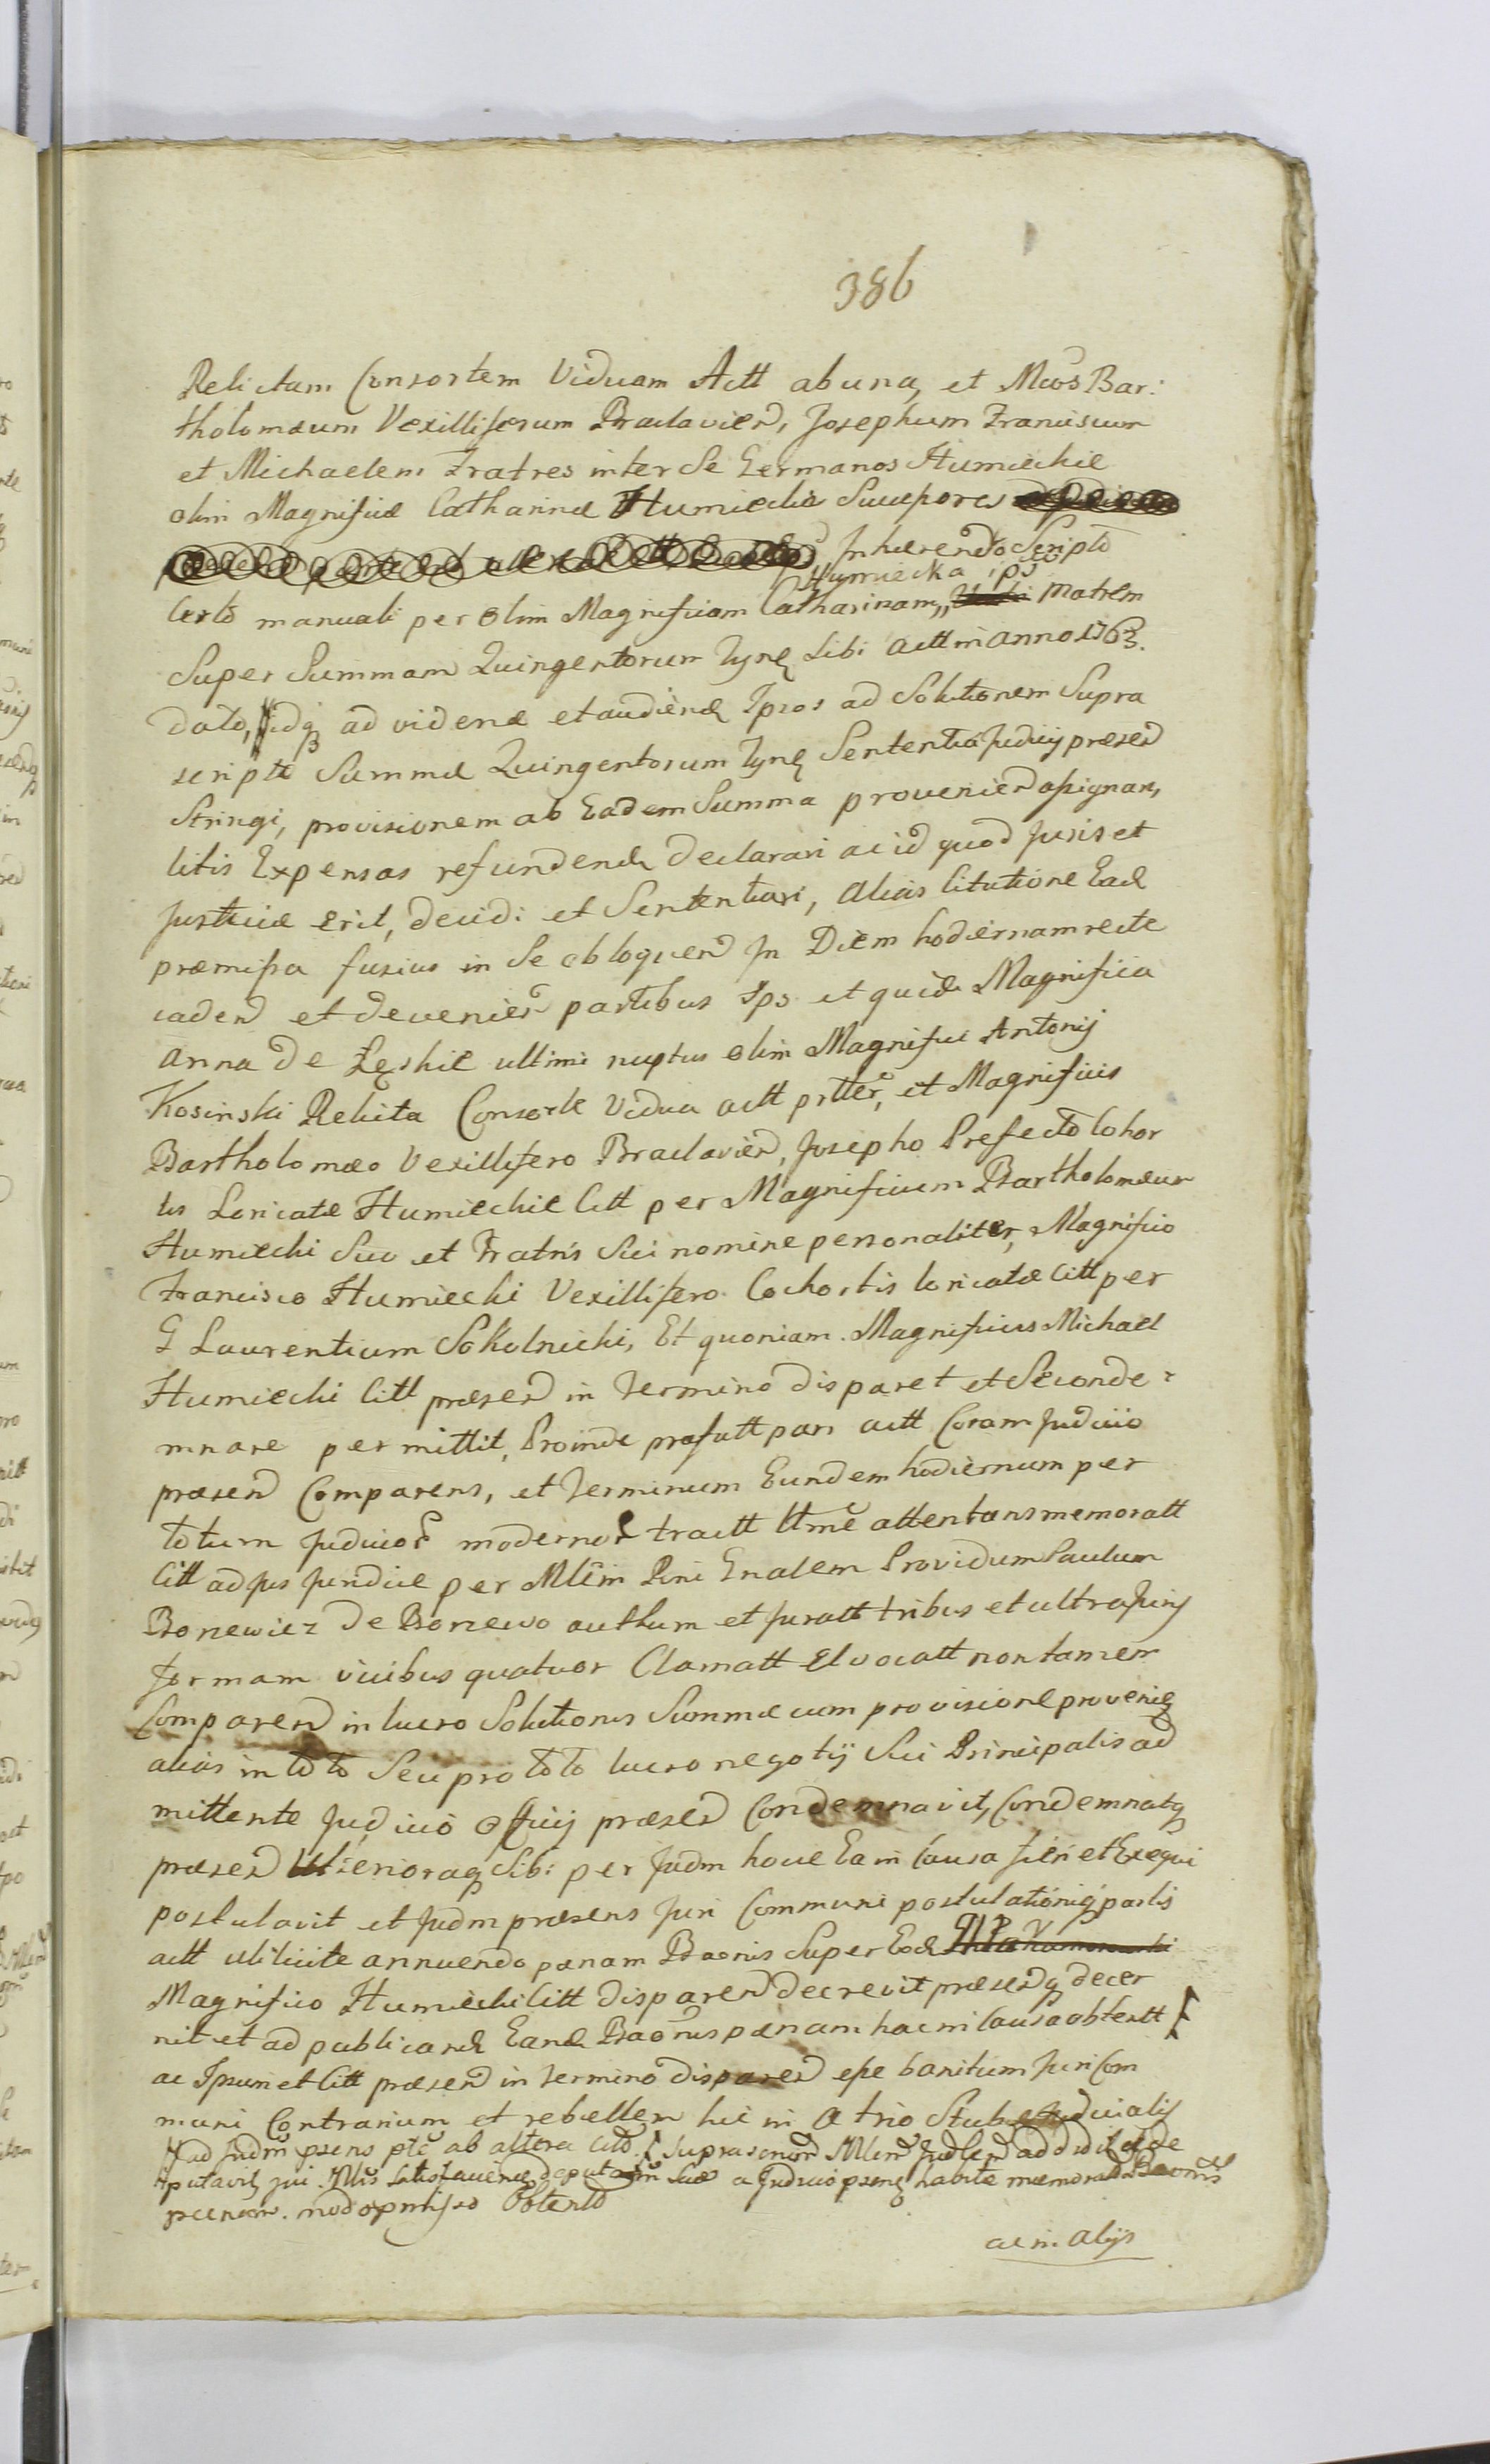 386
Relictam Consortem Viduam Actt ab una, et Mcos Bar:
tholomæum Vexilliferum Braclavien, Josephum Franciscum
et Michaelem Fratres inter Se Germanos Humieckie
olim Magnificæ Catharinæ Humiecka Sucessores
Inhærendo Scripto
Humiecka ips
Certo manuali per olim Magnificam Catharinam,, Matrem
Super Summam Quingentorum Tynf Sibi actt in anno 1763.
dato, idq ad videnđ et audiendđ Ipsos ad Solutionem Supra
scriptæ Summæ Quingentorum Tynf Sententia Judicij præsen
Stringi, provisionem ab Eadem Summa provenien assignari,
litis Expensas refundendđ declarari ac id quod Juris et
Justiciæ erit, decidi et Sententiari, alias Citatione Ead
præmissa fusius in Se obloquen In Diem hodiernam recte
caden et devenien partibus Ips et quid Magnifica
Anna de Łęskie ultimi nuptus olim Magnifici Antonij
Kosinski Relicta Consorte Vidua actt prtter, et Magnificis
Bartholomæo Vexillifero Braclavien, Josepho Prefecto Cohor
tis Loricatæ Humieckie Citt per Magnificum Bartholomæum
Humiecki Suo et Fratris Sui nomine personaliter, Magnifico
Francisco Humiecki Vexillifero Cohortis loricatæ Citt per
G Laurentium Sokolnicki, Et quoniam Magnificus Michael
Humiecki Citt præsen in Termino disparet et Se conde-
mnare permittit, Proinde præfatt pars actt Coram Judicio
præsen Comparens, et Terminum Eundem hodiernum per
totum Judicior modernor tractt ttme attentans memoratt
Citt ad Jus Juridice per Mlem Rni Gnalem Providum Paulum
Bonewicz de Bonewo authum et Juratt tribus et ultra Juris
formam vicibus quatuor Clamatt et vocatt non tamen
Comparen in lucro Solutionis Summæ cum provisione provenien
alias in toto Seu pro toto lucro negotij Sui Principalis ad
mittente Judicio Officij præsen Condemnavit, Condemnatq
præsen Ulterioraq Sibi per Judm hocce Ea in Causa fieri et Exequi
postulavit et Judm præsens Juri Communi postulationiq partis
actt uti licite annuendo pænam Baonis Super Eod
Magnifico Humiecki Citt disparen decrevit præsenq decer
nit et ad publicandđ Eand Baonis pænam hac in Causa obtentt
ac Ipsum et Citt præsen in Termino disparen esse banitum Juri Com
muni Contrarium et rebellem hic in Atrio Stubæ Judicialis
ad Judm psens pte ab altera Citt suprascrip Mlem Judlem addidit et de
putavit, qui Mlis Satisfaciendo deputaoni Suæ a Judicio psenq habitæ memoratt Baonis
pænam modo pmisso Obtentt
ac in alijs